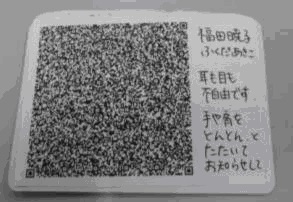 福田暁子
ふくだあきこ
耳も目も
不自由です
手や肩を
とんとん、と
たたいて
お知らせして